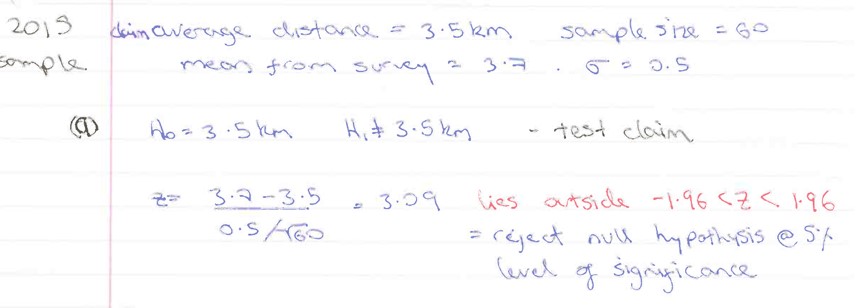 2015 claim average distance = 3.5km sample size = 60
sample mean from survey = 3.7 . σ = 0.5
(a) H₀ = 3.5km H₁ ≠ 3.5km - test claim
z = (3.7 - 3.5)/(0.5/√60) = 3.09 lies outside -1.96 < Z < 1.96
= reject null hypothysis @ 5%
level of significance